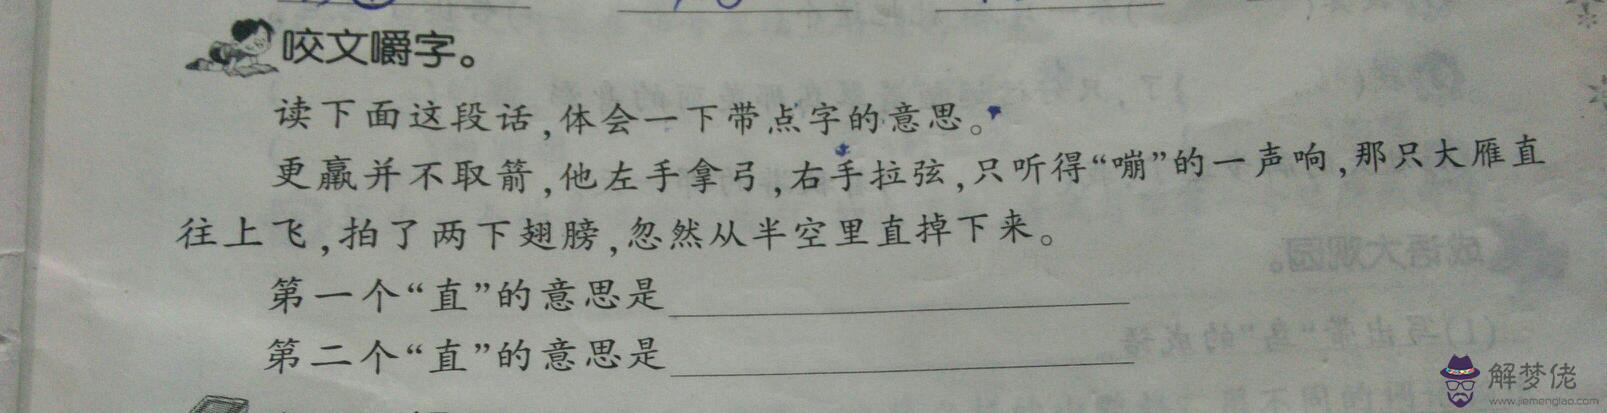 咬文嚼字。
读下面这段话,体会一下带点字的意思。
更羸并不取箭,他左手拿弓,右手拉弦,只听得“嘣”的一声响,那只大雁直
往上飞,拍了两下翅膀,忽然从半空里直掉下来。
第一个“直”的意思是
第二个“直”的意思是
解梦佬
www.jiemenglao.com